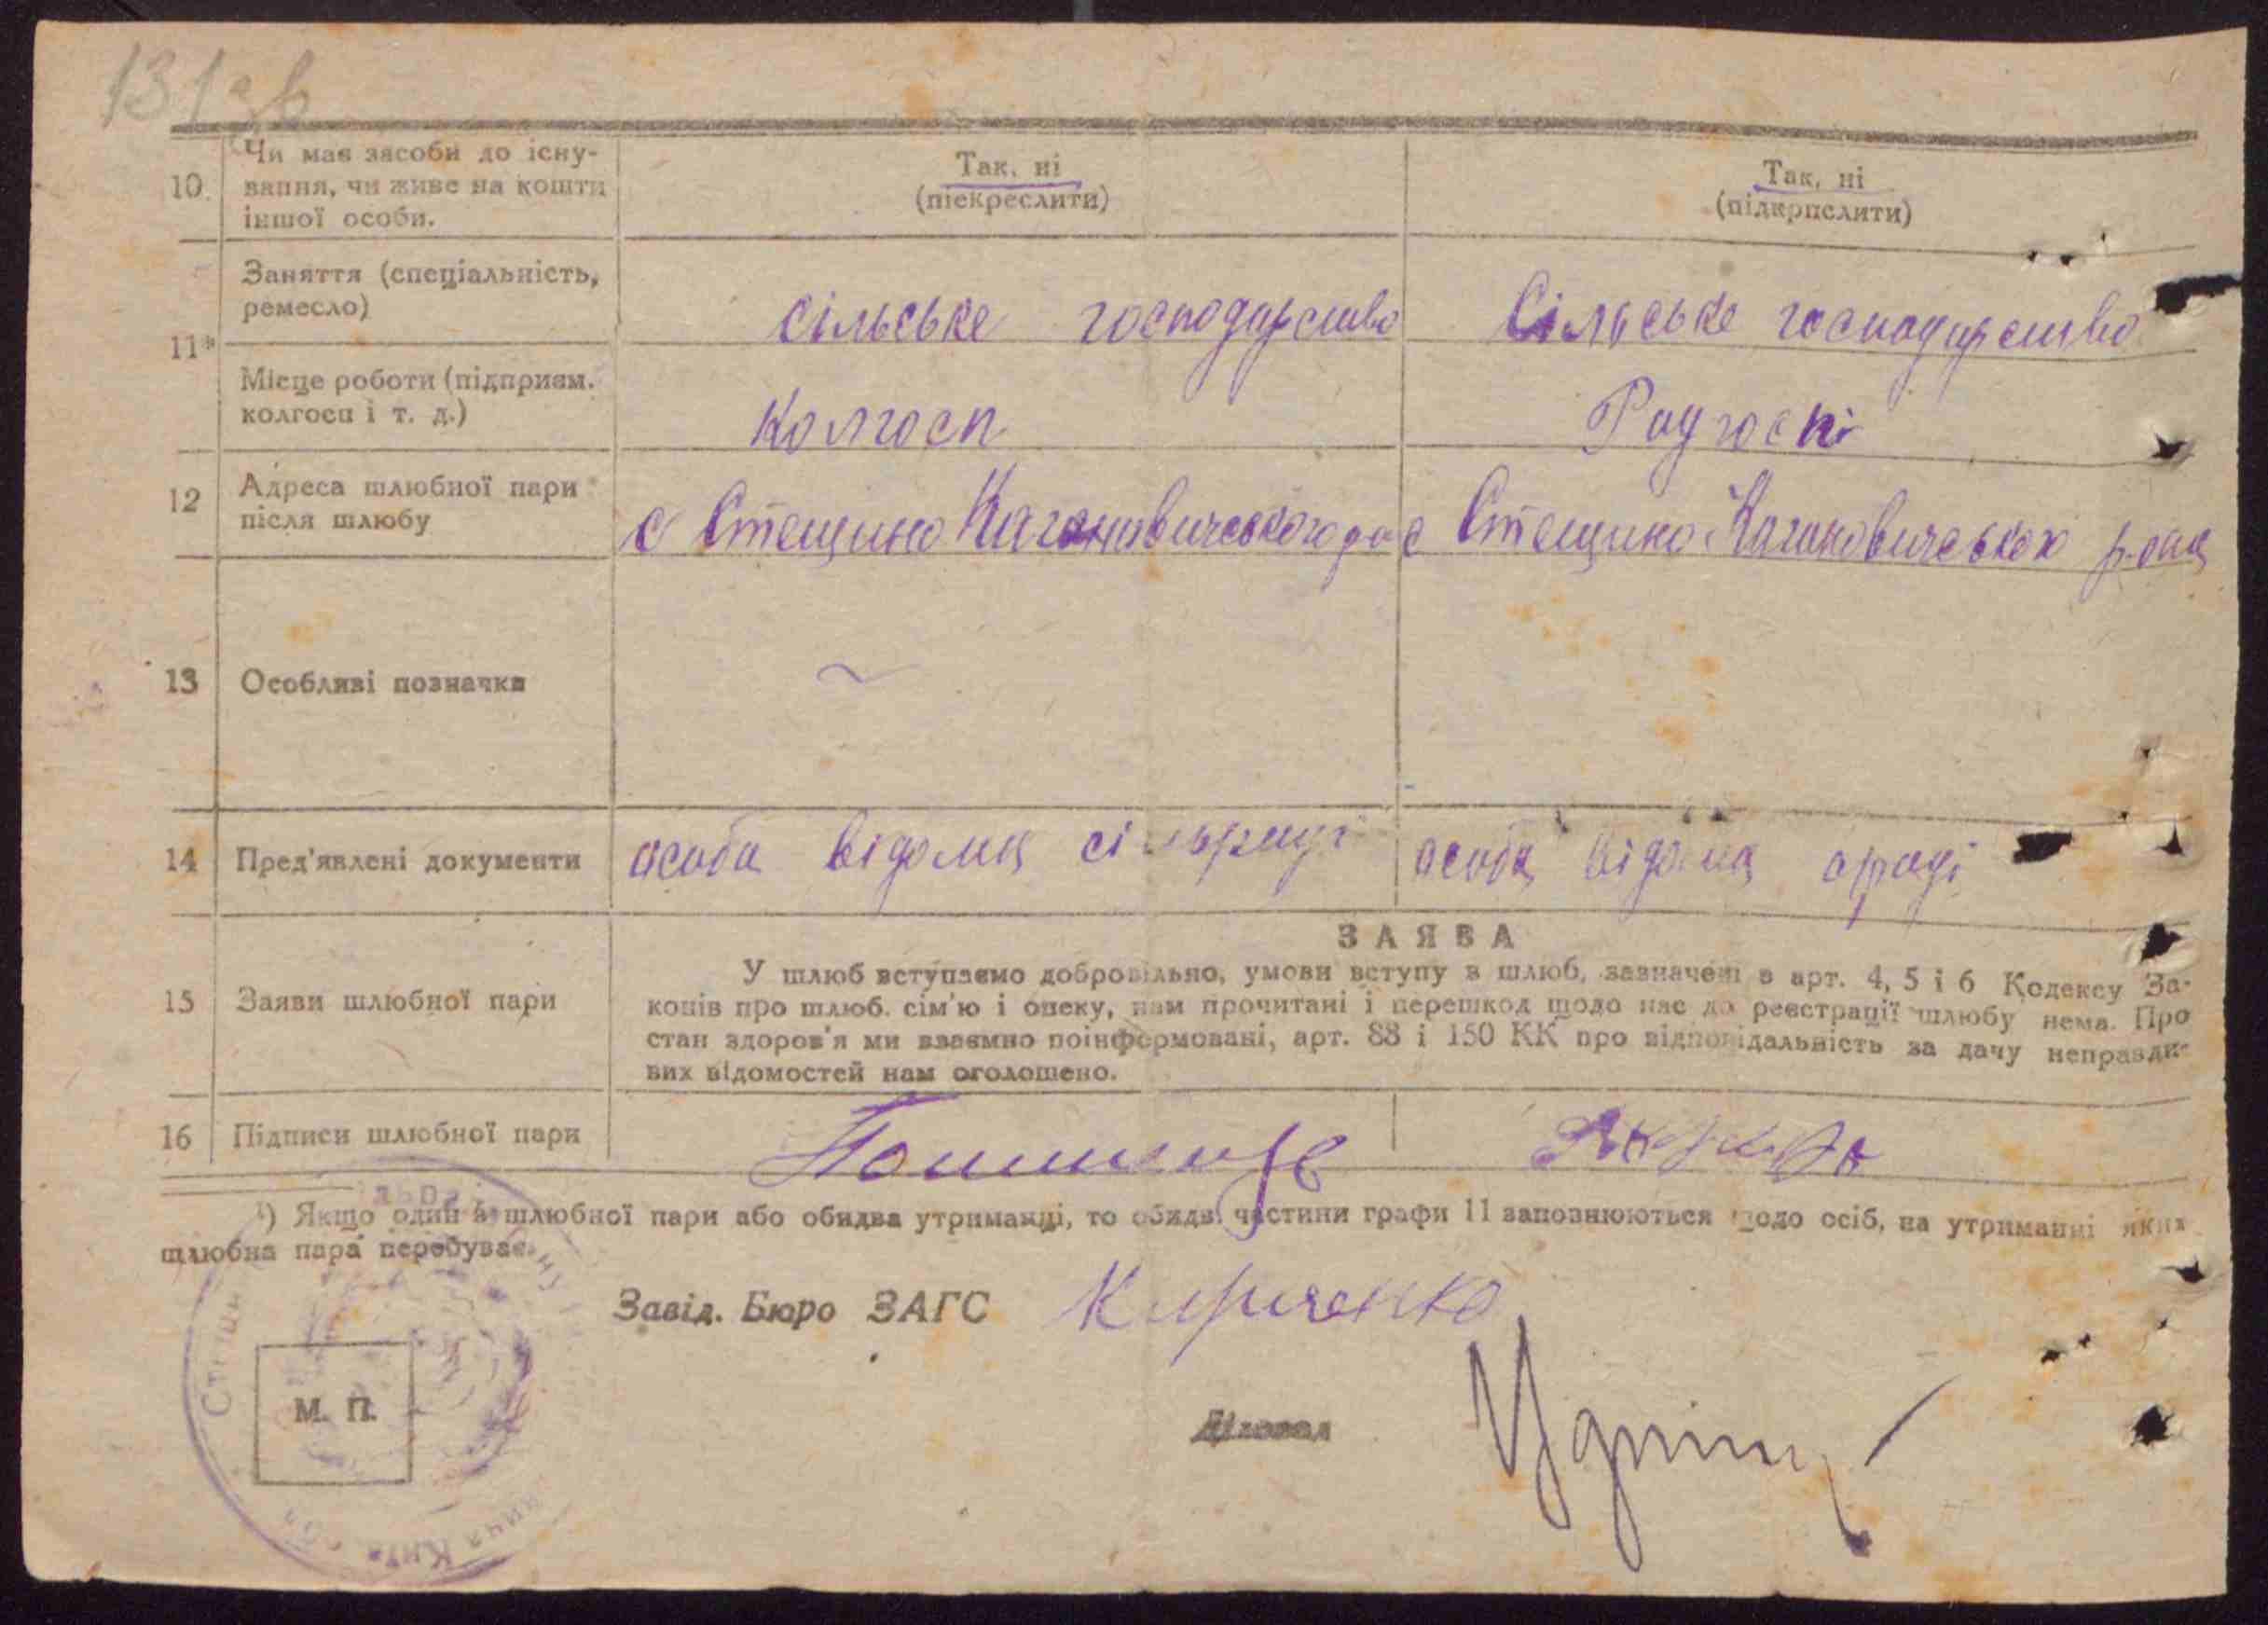 131зв
10. Чи має засоби до існу-
вання, чи живе на кошти
іншої особи.
Так, ні
(піекреслити)
Так, ні
(підкрпслити)
Заняття (спеціальність,
ремесло)
сільське господарство
Сільське господарство
11*
Місце роботи (підприєм.
колгосп і т. д.)
Колгосп
Радгоспі
12 Адреса шлюбної пари
після шлюбу
с Стещино Кагановичського р
с Стещино Кагановичського р-она
13 Особливі позначки
14 Пред'явлені документи
особа відома сільраді
особа відома с/раді
15 Заяви шлюбної пари
ЗАЯВА
У шлюб вступаємо добровільно, умови вступу в шлюб, зазначені в арт. 4, 5 і 6 Кодексу За-
конів про шлюб. сім'ю і опеку, нам прочитані і перешкод щодо нас до реєстрації шлюбу нема. Про
стан здоров'я ми взаємно поінформовані, арт. 88 і 150 КК про відповідальність за дачу неправди-
вих відомостей нам оголошено.
16 Підписи шлюбної пари
¹) Якщо один з шлюбної пари або обидва утриманці, то обидві частини графи 11 заповнюються щодо осіб, на утриманні яких
шлюбна пара перебуває.
Завід. Бюро ЗАГС Кириченко
М. П.
Діловод